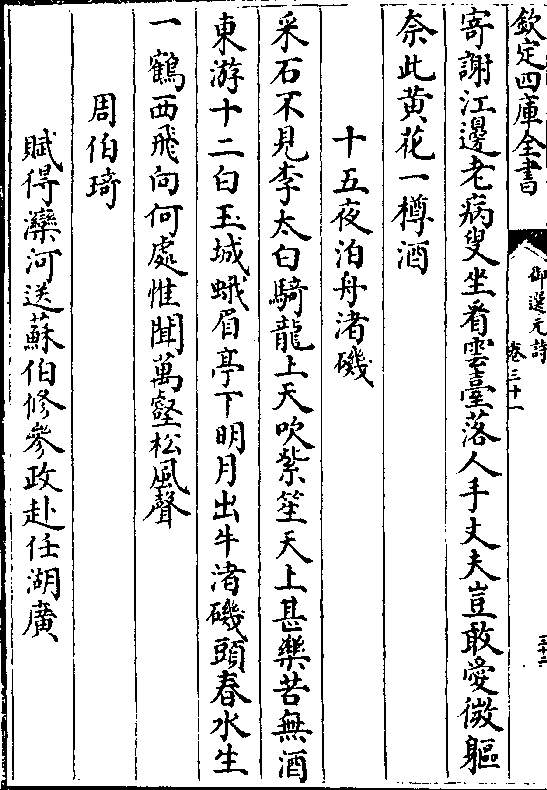 欽定四庫全書
御選元詩
卷三十一
三十二
寄謝江邊老病叟坐看雲臺落人手丈夫豈敢愛微軀
奈此黃花一樽酒
十五夜泊舟渚磯
采石不見李太白騎龍上天吹紫笙天上甚樂苦無酒
東游十二白玉城蛾眉亭下明月出牛渚磯頭春水生
一鶴西飛向何處惟聞萬壑松風聲
周伯琦
賦得灤河送蘇伯修參政赴任湖廣